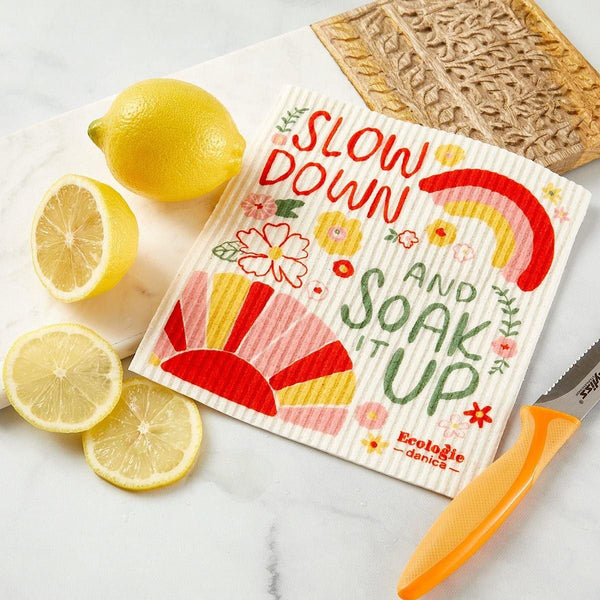 SLOW
DOWN
AND
SOAK
IT
UP
Ecologie
danica